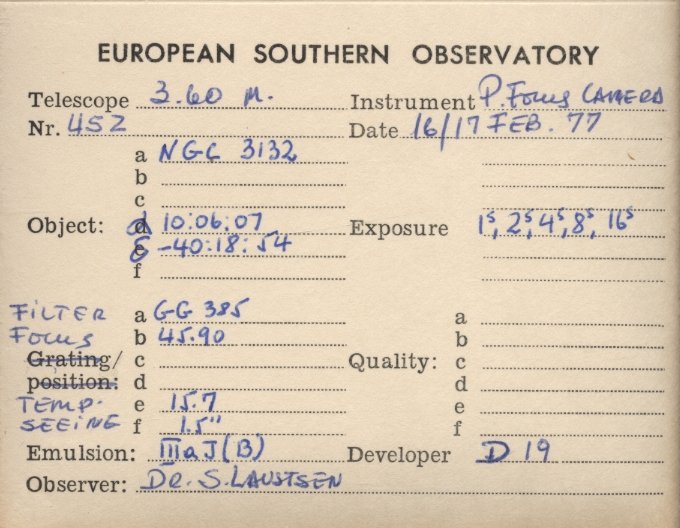 EUROPEAN SOUTHERN OBSERVATORY
Telescope 3.60 m. Instrument P. Focus CAMERA
Nr. 452 Date 16/17 FEB. 77
a NGC 3132
b
c
Object: d α 10:06:07 Exposure 1s, 2s, 4s, 8s, 16s
e δ -40:18:54
f
FILTER a GG 385 a
Focus b 45.90 b
Grating/ c Quality: c
position: d d
TEMP. e 15.7 e
SEEING f 1.5" f
Emulsion: IIIaJ(B) Developer D 19
Observer: DR. S. LAUSTSEN